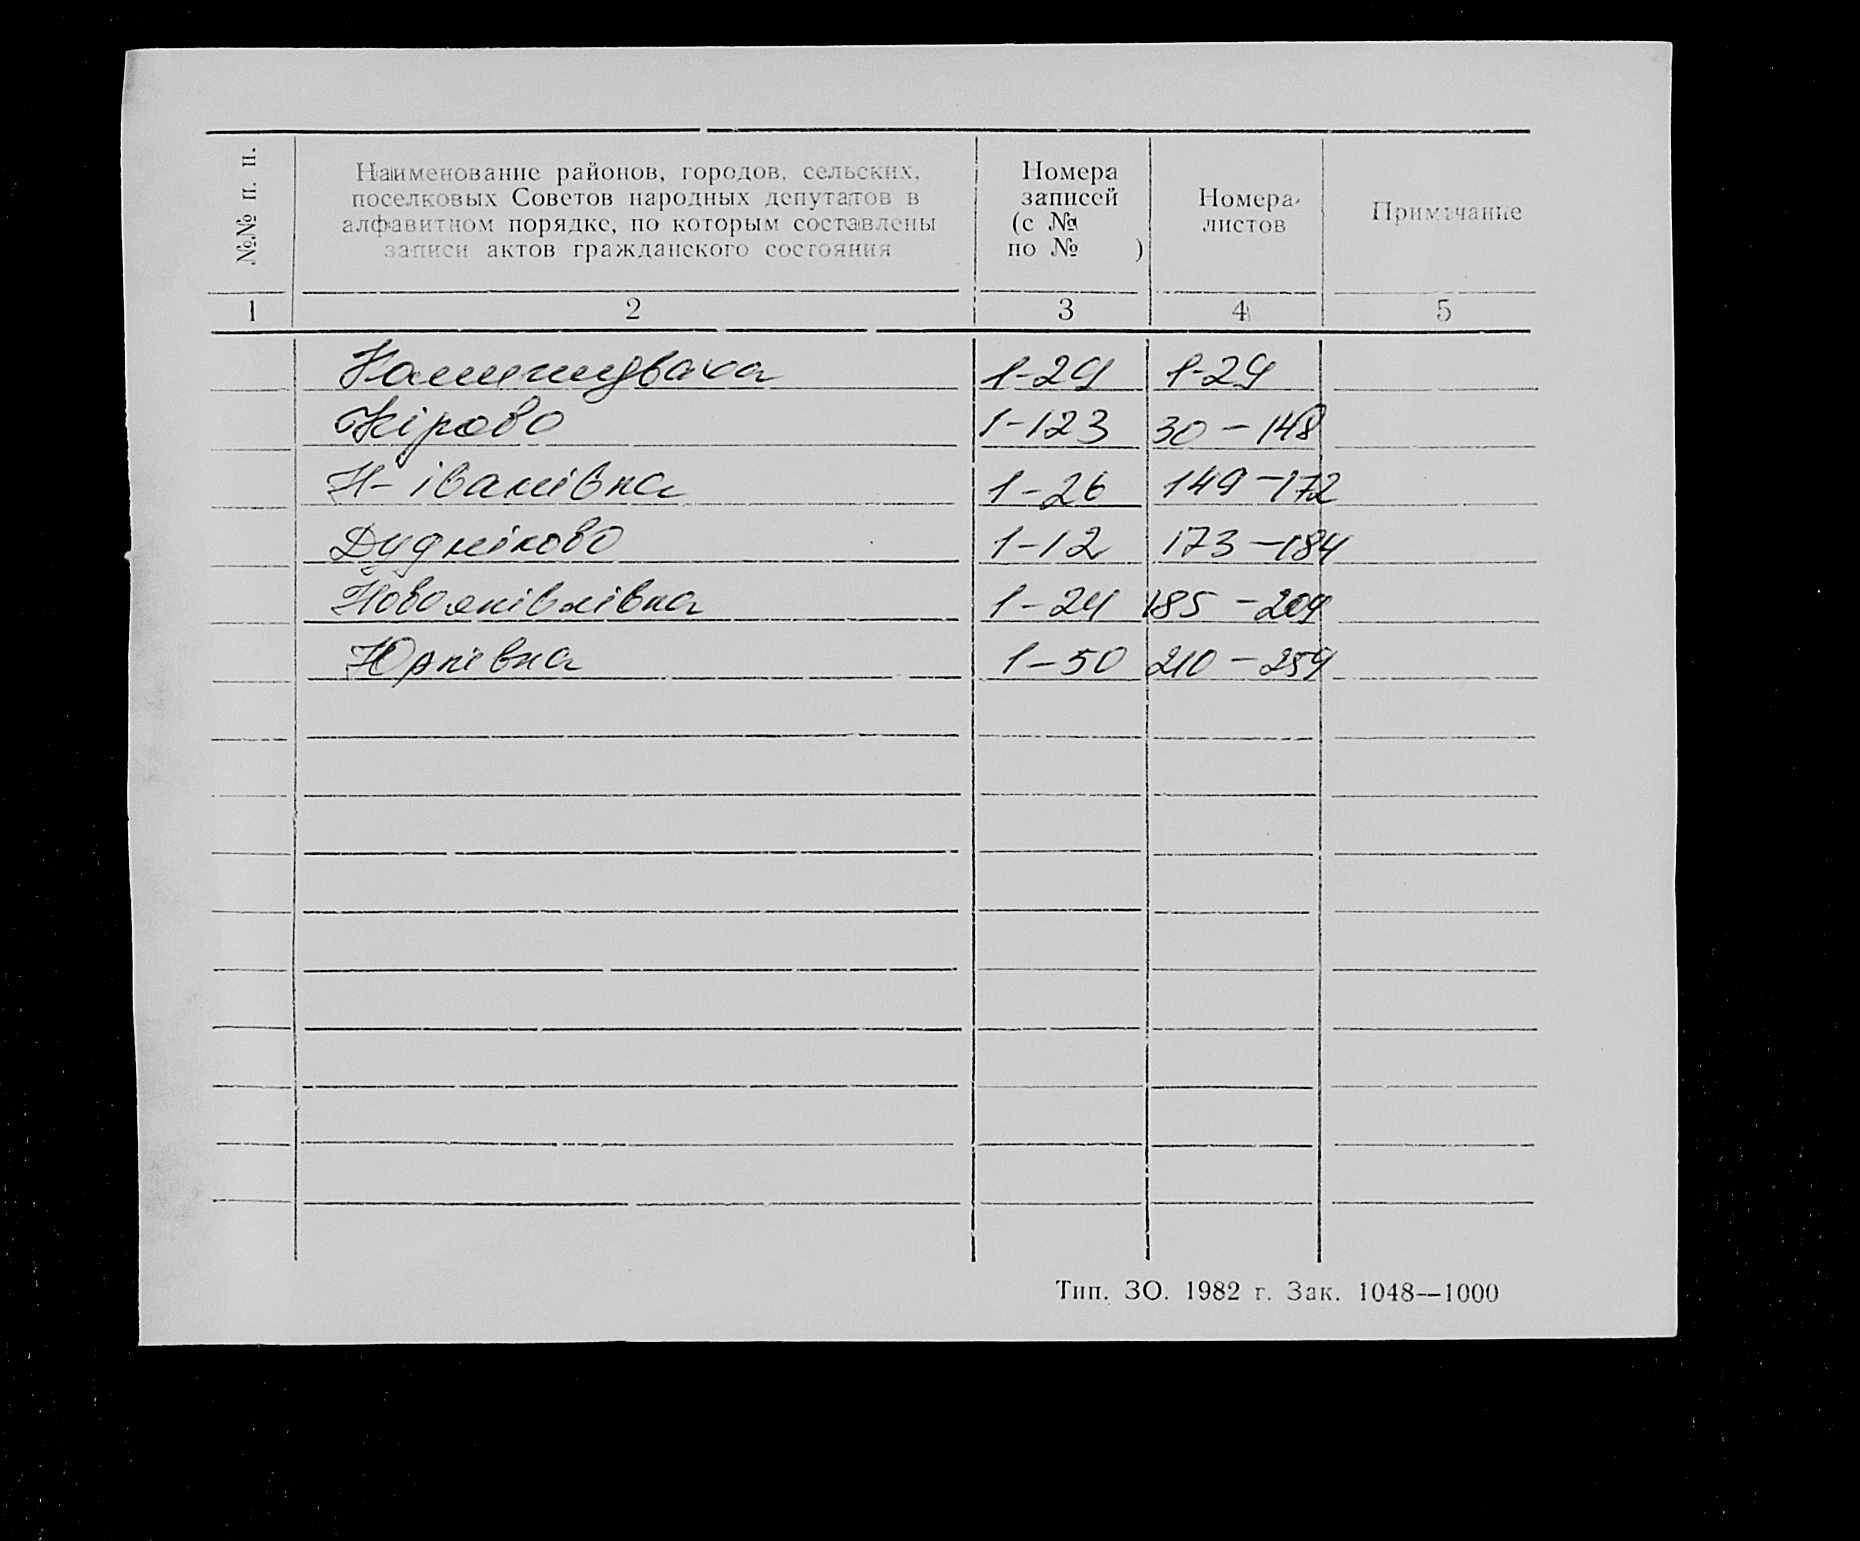 №№ п. п.
Наименование районов, городов, сельских,
поселковых Советов народных депутатов в
алфавитном порядке, по которым составлены
записи актов гражданского состояния
Номера
записей
(с №
по № )
Номера
листов
Примечание
1 2 3 4 5
Камишуваха 1-29 1-29
Кірово 1-123 30-148
Н-іванівка 1-26 149-172
Дудніково 1-12 173-184
Новояківлівка 1-24 185-209
Юрківка 1-50 210-259
Тип. ЗО. 1982 г. Зак. 1048—1000